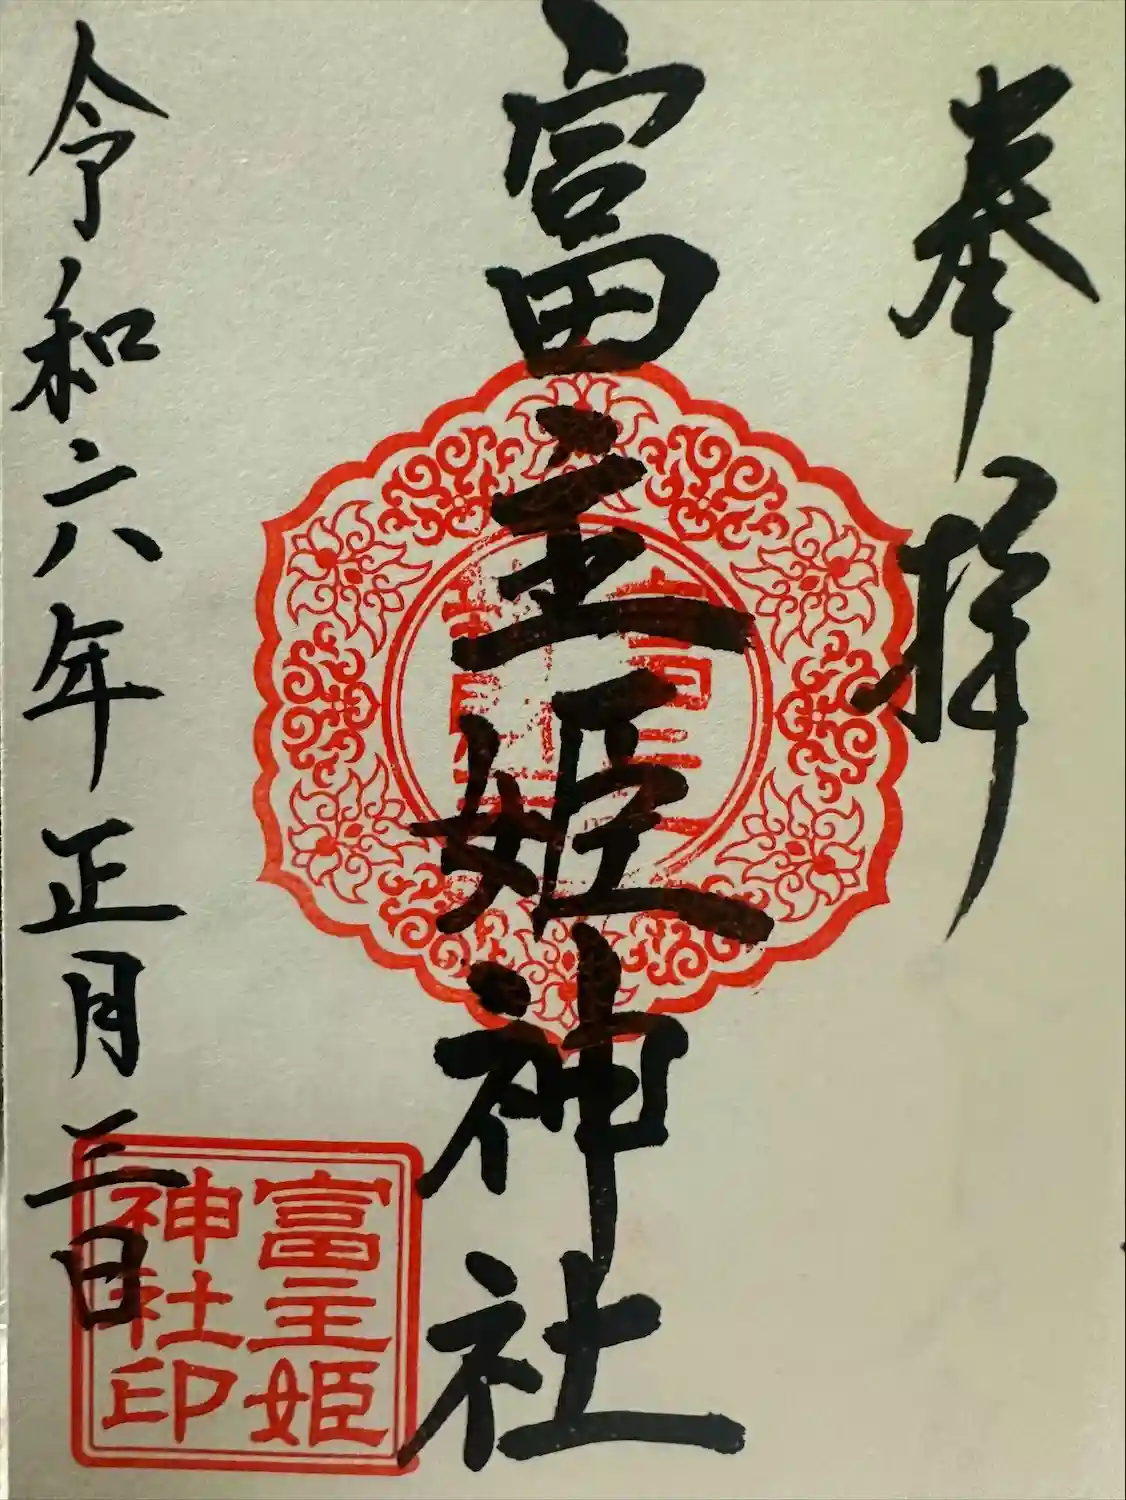 奉拝
富主姫神社
令和六年正月二日
富主姫
神社印